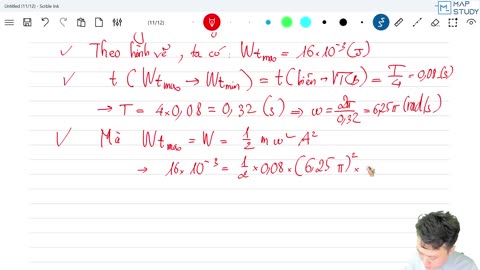 Untitled (11/12) - Scrble Ink
(11/12)
MAP
STUDY
✓ Theo hình vẽ, ta có: Wt_max = 16×10^-3 (J)
✓ t(Wt_max → Wt_min) = t(biên → VTCB) = T/4 = 0,08(s)
→ T = 4×0,08 = 0,32 (s) ⇒ ω = 2π/0,32 = 6,25π (rad/s)
✓ Mà Wt_max = W = 1/2 m ω² A²
→ 16×10^-3 = 1/2 × 0,08 × (6,25π)² ×